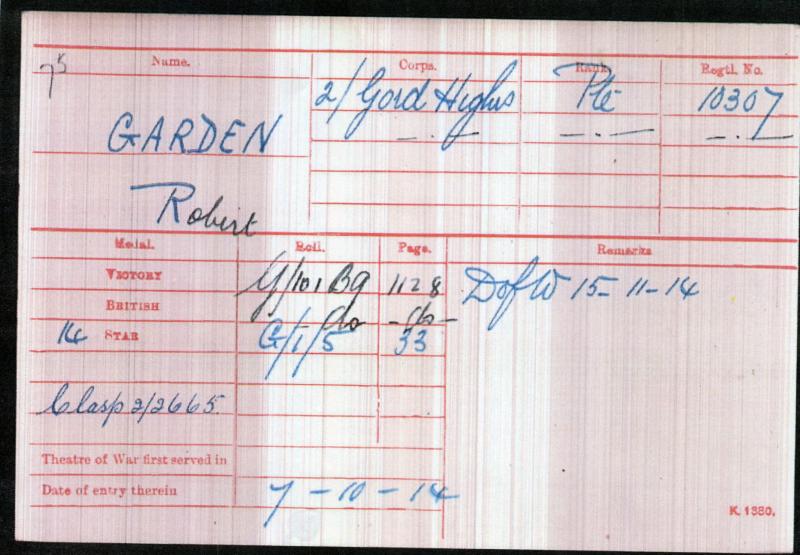 Name. Corps. Rank. Regtl. No.
2/ Gord Highrs Pte 10307
GARDEN — . — — . — — . —
Robert
Medal. Roll. Page. Remarks
VICTORY G/101 B9 1128 D of W 15-11-14
BRITISH Do -do-
14 STAR G/1/5 33
Clasp 2/2665.
Theatre of War first served in
Date of entry therein 7-10-14
K. 1380.